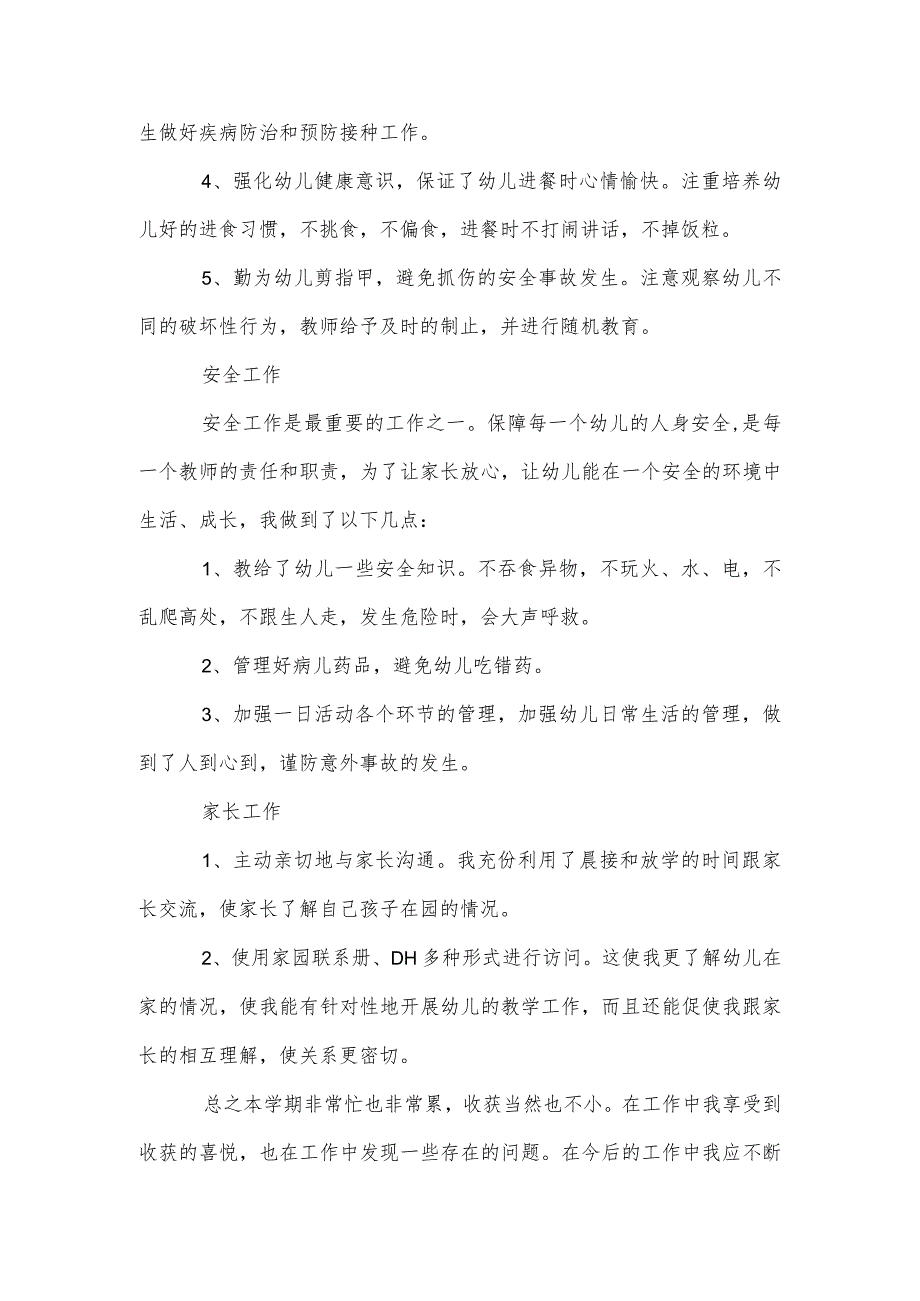 生做好疾病防治和预防接种工作。
4、强化幼儿健康意识，保证了幼儿进餐时心情愉快。注重培养幼
儿好的进食习惯，不挑食，不偏食，进餐时不打闹讲话，不掉饭粒。
5、勤为幼儿剪指甲，避免抓伤的安全事故发生。注意观察幼儿不
同的破坏性行为，教师给予及时的制止，并进行随机教育。
安全工作
安全工作是最重要的工作之一。保障每一个幼儿的人身安全,是每
一个教师的责任和职责，为了让家长放心，让幼儿能在一个安全的环境中
生活、成长，我做到了以下几点：
1、教给了幼儿一些安全知识。不吞食异物，不玩火、水、电，不
乱爬高处，不跟生人走，发生危险时，会大声呼救。
2、管理好病儿药品，避免幼儿吃错药。
3、加强一日活动各个环节的管理，加强幼儿日常生活的管理，做
到了人到心到，谨防意外事故的发生。
家长工作
1、主动亲切地与家长沟通。我充份利用了晨接和放学的时间跟家
长交流，使家长了解自己孩子在园的情况。
2、使用家园联系册、DH多种形式进行访问。这使我更了解幼儿在
家的情况，使我能有针对性地开展幼儿的教学工作，而且还能促使我跟家
长的相互理解，使关系更密切。
总之本学期非常忙也非常累，收获当然也不小。在工作中我享受到
收获的喜悦，也在工作中发现一些存在的问题。在今后的工作中我应不断